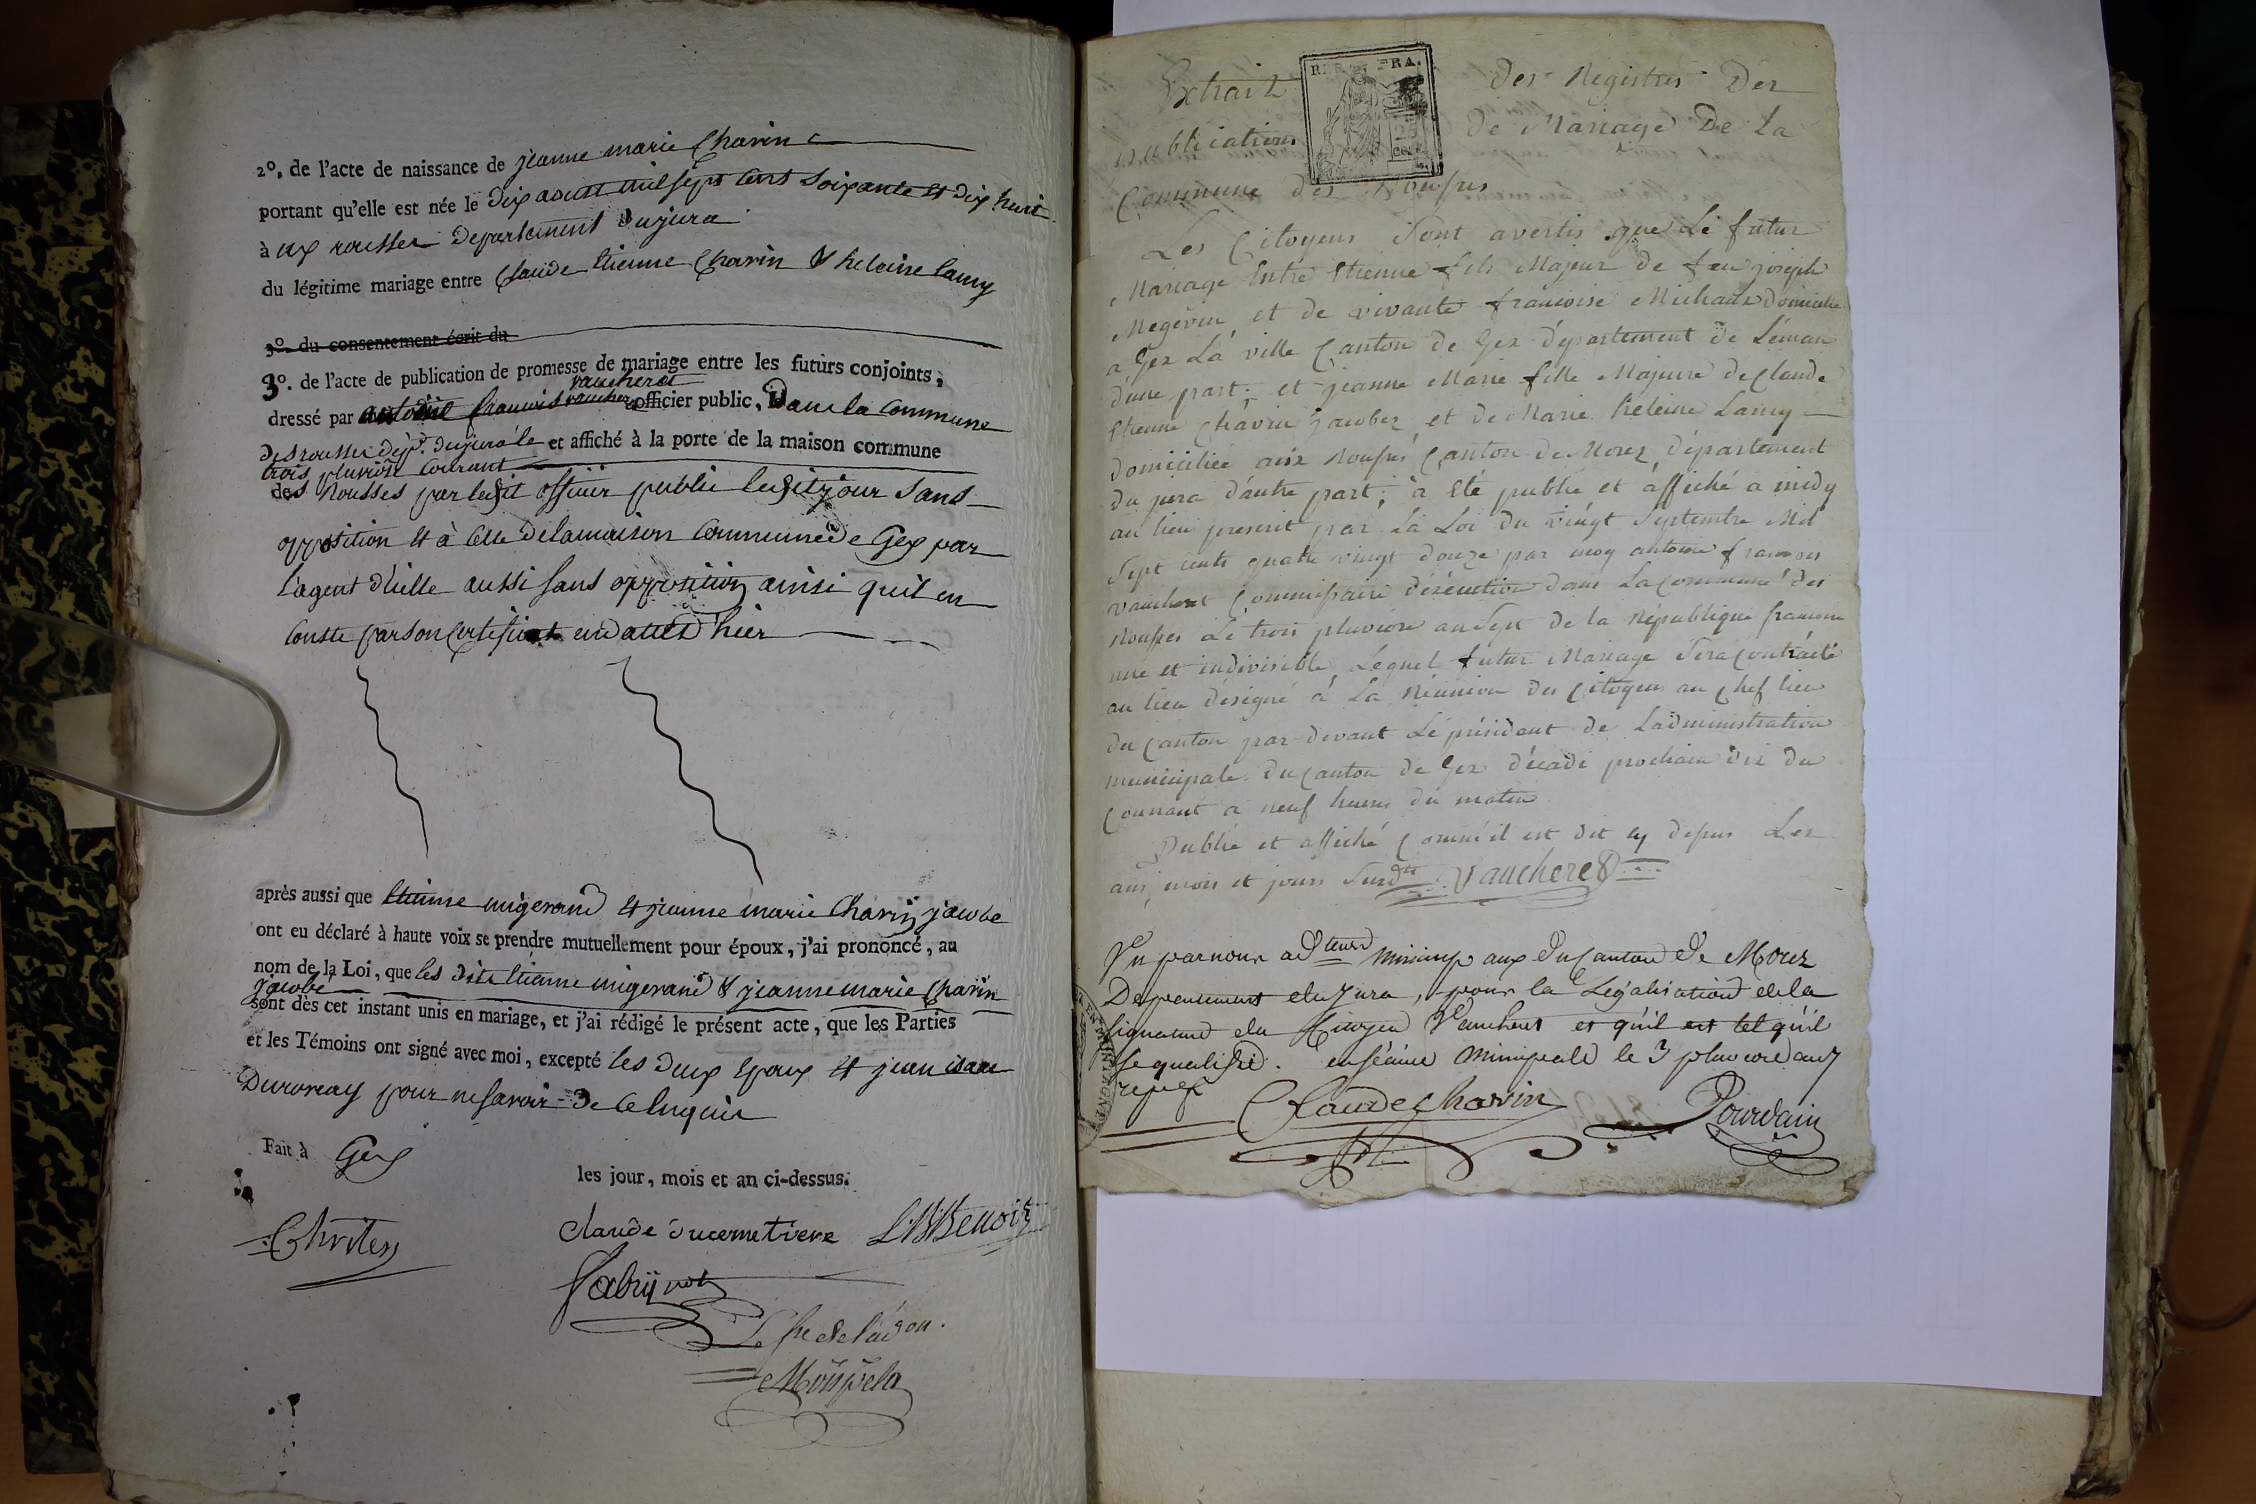 2º. de l'acte de naissance de jeanne marie Chavin
portant qu'elle est née le dix aoust mil sept cens soixante et dix huit
à aux rousses departement du jura
du légitime mariage entre Claude Etienne Chavin & heleine lamy
3º. du consentement écrit du
3º. de l'acte de publication de promesse de mariage entre les futurs conjoints,
vaucheret
dressé par antoine francois vaucher officier public, Dans la commune
des rousses dépt. du jura le et affiché à la porte de la maison commune
trois pluviose courant
des Rousses par ledit officier public ledit jour sans
opposition et à celle de la maison commune de Gex par
l'agent d'icelle aussi sans opposition ainsi qu'il en
conste par son certificat en datte d'hier
après aussi que Etienne migerand et jeanne marie Chavin jacobe
ont eu déclaré à haute voix se prendre mutuellement pour époux, j'ai prononcé, au
nom de la Loi, que les dits Etienne migerand & jeanne marie Chavin
jacobe
sont dès cet instant unis en mariage, et j'ai rédigé le présent acte, que les Parties
et les Témoins ont signé avec moi, excepté les deux Epoux et jean isaac
Duvornay pour ne savoir de ce enquis
Fait à Gex
les jour, mois et an ci-dessus.
Claude ducemetiere L.B.Benoit
Fabry not
Extrait des Registres Des
publications de Mariage De La
Commune des Rousses
REP. FRA.
25
CEN.
Les Citoyens sont avertis que Le futur
Mariage Entre Etienne fils Majeur de feu joseph
Megevin et de vivante francoise Michaux domicilié
a Gex La ville Canton de Gex département de Léman
d'une part, et jeanne Marie fille Majeure de Claude
Etienne Chavin jacobez et de Marie heleine Lamy
domiciliée aux Rousses Canton de Morez département
du jura d'autre part, à été publié et affiché a midy
au lieu prescrit par La Loi du vingt Septembre Mil
Sept cents quatre vingt douze par moy antoine francois
vaucheret Commissaire d'exécution dans La commune des
Rousses Le trois pluviose an Sept de la République francaise
une et indivisible, Lequel futur Mariage Sera contracté
au lieu désigné à La Réunion des Citoyens au Chef lieu
du Canton par devant Le président de Ladministration
municipale du Canton de Gex décadi prochain dix du
Courrant a neuf heures du matin
Publié et affiché Comme il est dit cy dessus Les
ans, mois et jours Susdts Vaucheret
Vu par nous adteurs municipaux du Canton de Morez
Departement du Jura, pour la Légalisation de la
signature du Citoyen Vaucheret et qu'il est tel qu'il
se qualifie. en séance municipale le 3 pluviose an 7
repue
Claude Chavin Pourdain